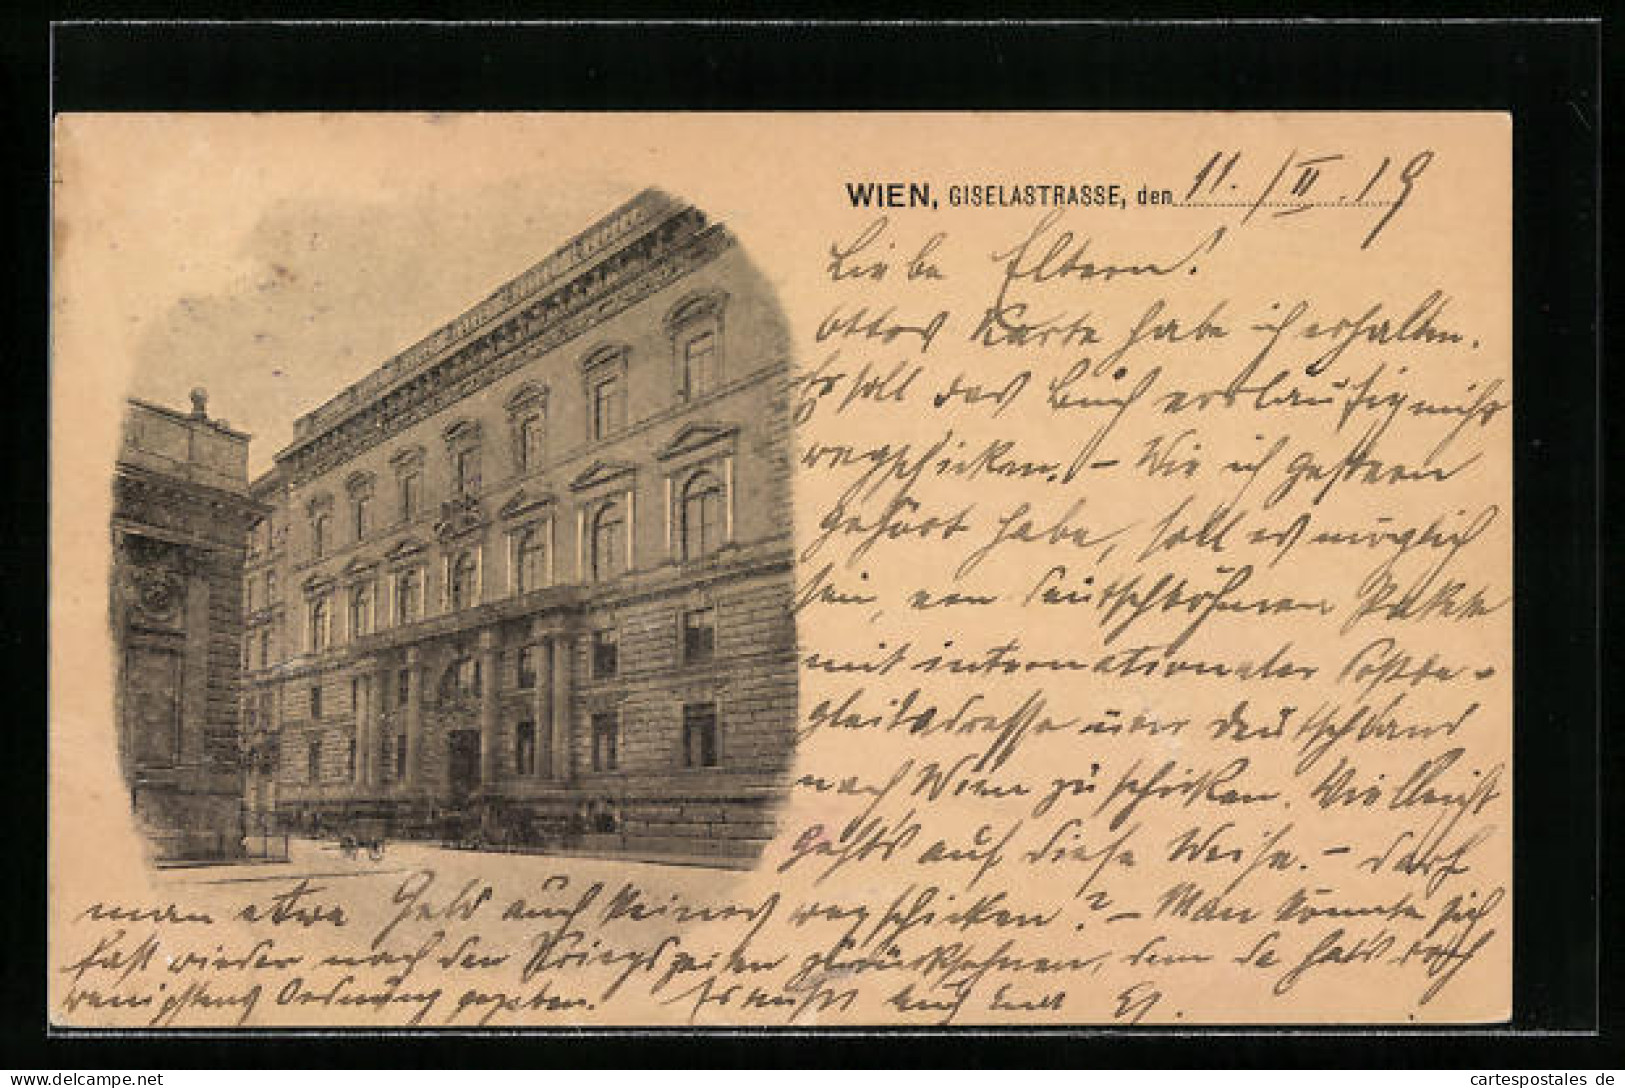 WIEN, GISELASTRASSE, den 11./II.19
Liebe Eltern!
Ottos Karte habe ich erhalten.
Er soll das Buch vorläufig nicht
wegschicken. – Wie ich gestern
gehört habe, soll es möglich
sein, von Deutschböhmen Pakete
mit internationaler Postbe-
gleitadresse über Deutschland
nach Wien zu schicken. Vielleicht
gehts auf diese Weise. – Darf
man etwa Geld auch keines wegschicken? – Man könnte sich
fast wieder nach den Kriegszeiten zurücksehnen, denn da hats doch
wenigstens Ordnung gegeben. Es küsst Euch
cartespostales de